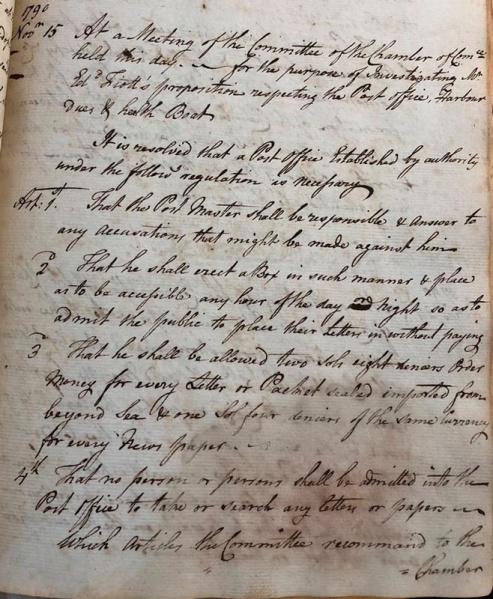 1790
Novr 15 At a Meeting of the Committee of the Chamber of Comce
held this day — for the purpose of Investigating Mr
Edd Fiott's proposition respecting the Post office, Harbour
Dues & health Boat
It is resolved that a Post Office Established by authority
under the follows regulation is necessary
Art: 1st. That the Post Master shall be responsible & answer to
any accusations that might be made against him
2d That he shall erect a Box in such manner & place
as to be accessible any hour of the day or night so as to
admit the public to place their Letters in without paying
3 That he shall be allowed two sols eight deniers Order
Money for every Letter or Packet sealed imported from
beyond Sea & one Sol four deniers of the same Currency
for every News paper. —
4th That no person or persons shall be admitted into the
Post Office to take or search any letters or papers —
Which Articles the Committee recommand to the
= Chamber